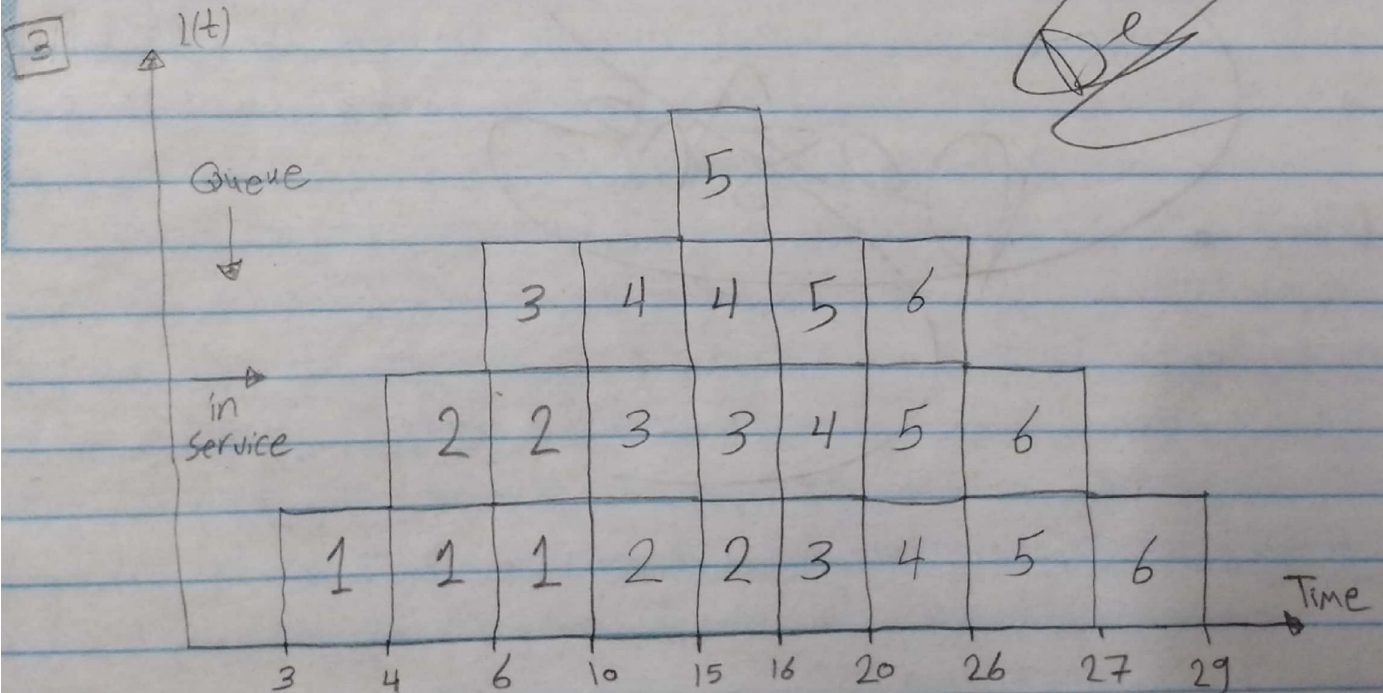 3
L(t)
Queue
in
service
5
3 4 4 5 6
2 2 3 3 4 5 6
1 1 1 2 2 3 4 5 6
Time
3 4 6 10 15 16 20 26 27 29